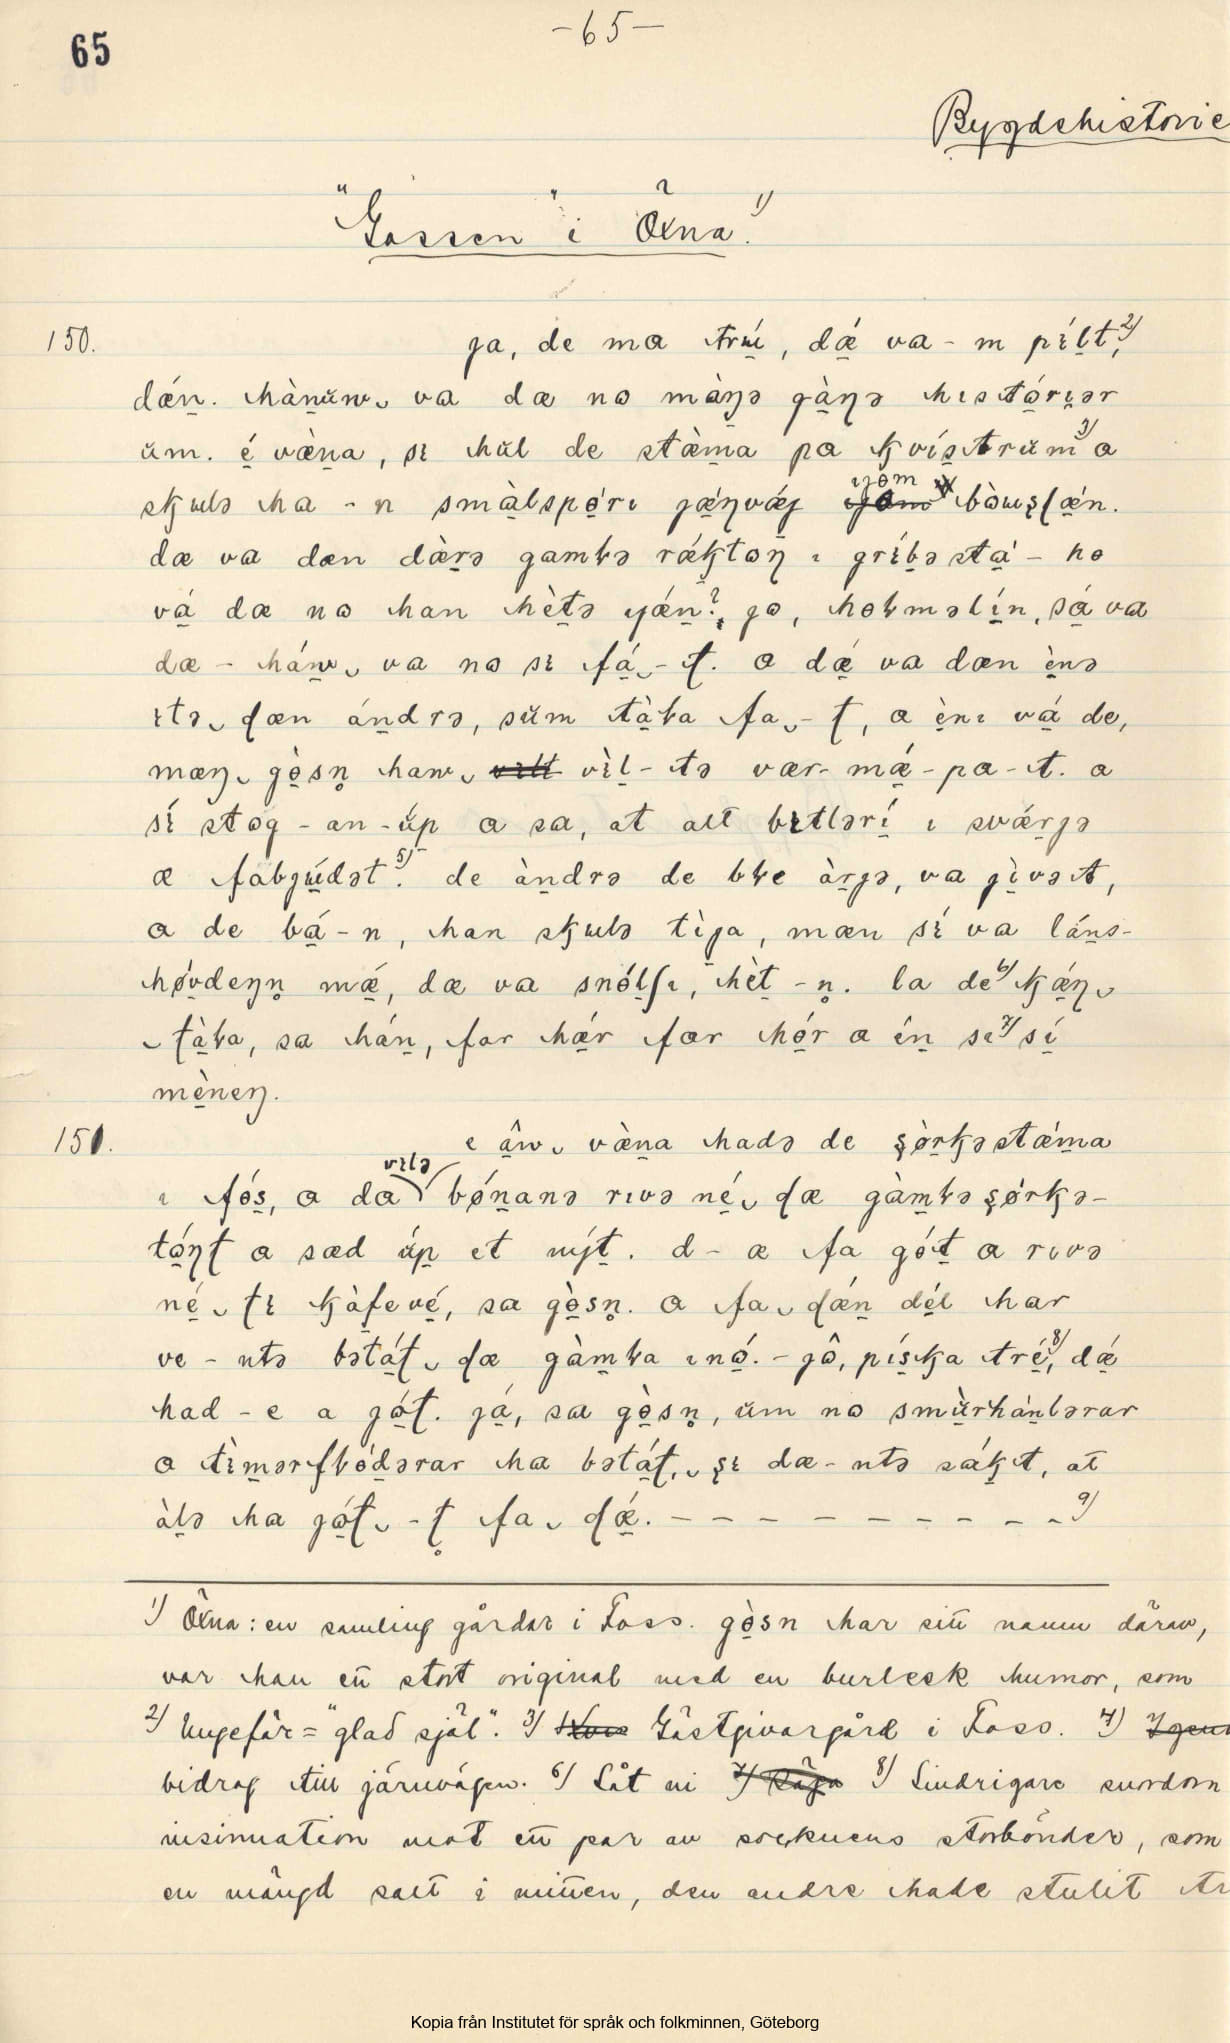 65
-65-
Bygdehistorie
"Gossen" i Öxna. 1)
150. ja, de ma trɯ́, dǽ va - m pɩ́lt, 2)
dǽn. hànŭw va dæ no màŋə gàŋə hɩstórɩər
ŭm. é væ̀na, sɩ hŭl de stæ̀ma pa kvístrŭm 3) a
skɯlə ha - n smàlspó̤rɩ jǽŋvǽj ɩjøm bòɯsʃǽn.
dæ va dæn dàrə gamƚə rǽktoŋ ɩ grɩ́bəstà - ho
vá dæ no han hètə ɩjǽn? jo, hoƚməlín, sá va
dæ - hánw va no sɩ fá - t. a dǽ va dæn ènə
ɩtə dæn ándrə, sŭm tàka fa - t, a ènɩ vá de,
mæŋ gòsn haw vɩ̀l - tə vær mǽ - pa - t. a
sɩ́ stog - an - ŭ́p a sa, at alt bɩtlərí ɩ sværjə
æ fabjɯ́dət. 5) de àndrə de bƚe àrjə, va jìvət,
a de bá - n, han skɯlə tìja, mæn sɩ́ va láns-
hǿvdeŋn mǽ, dæ va snólʃɩ, hèt - n. la de 6) kǽŋ
tàka, sa hán, far hǽr far hór a în sɩ 7) sí
mèneŋ.
151. e âw væ̀na hadə de sø̀rkəstǽma
ɩ fós, a da vɩlə bǿnanə rɩvə né dæ gàmƚə sø̀rkə-
tóŋt a sæd ŭ́p et nýt. d - æ fa gót a rɩvə
né tɩ kàfevé, sa gòsn. a fa dǽn dél har
ve - ntə bətát dæ gàmƚa ɩnó. - jô, pískа tré, 8) dǽ
had - e a jót. já, sa gòsn, ŭm no smŭ̀rhánlərar
a tìmərfƚódərar ha bətát, sɩ dæ - ntə sákt, at
àlə ha jót - t fa dǽ. - - - - - - - - - 9)
1) Öxna: en samling gårdar i Foss. gòsn har sitt namn därav,
var han ett stort original med en burlesk humor, som
2) Ungefär = "glad själ". 3) Gästgivargård i Foss. 4)
bidrag till järnvägen. 6) Låt ni 8) Lindrigare svordom
insinuation mot ett par av socknens storbönder, som
en mängd salt i mitten, den andre hade stulit
Kopia från Institutet för språk och folkminnen, Göteborg